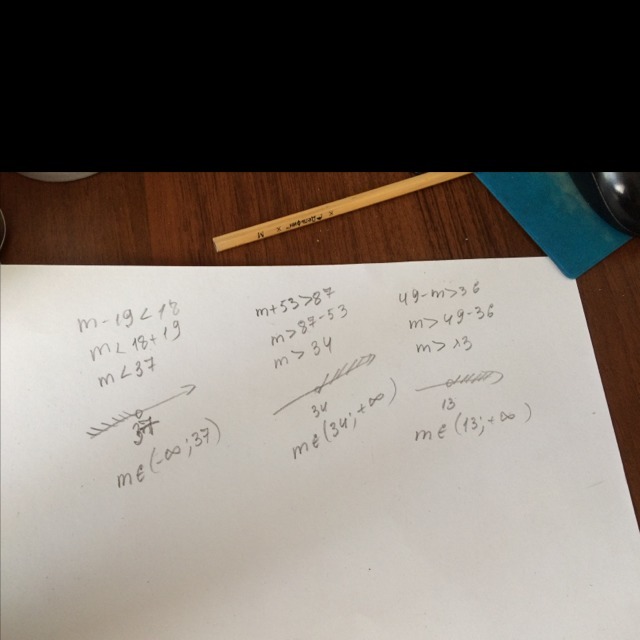 m - 19 < 18
m < 18 + 19
m < 37
37
m ∈ (-∞; 37)
m + 53 > 87
m > 87 - 53
m > 34
34
m ∈ (34; +∞)
49 - m > 36
m > 49 - 36
m > 13
13
m ∈ (13; +∞)